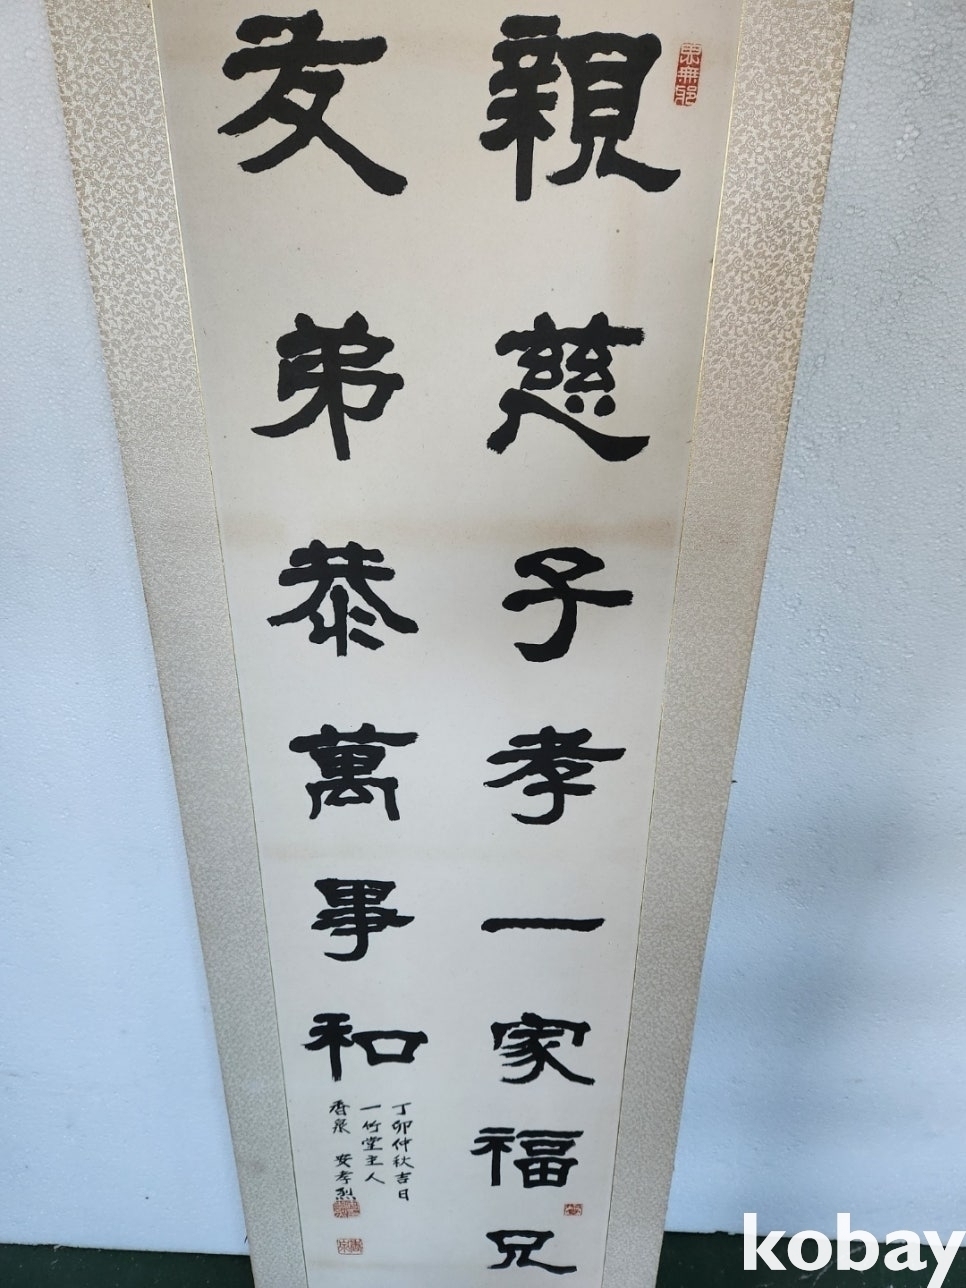 親慈子孝一家福兄
友弟恭萬事和
丁卯仲秋吉日
一竹堂主人
香泉 安孝烈
思無邪
kobay